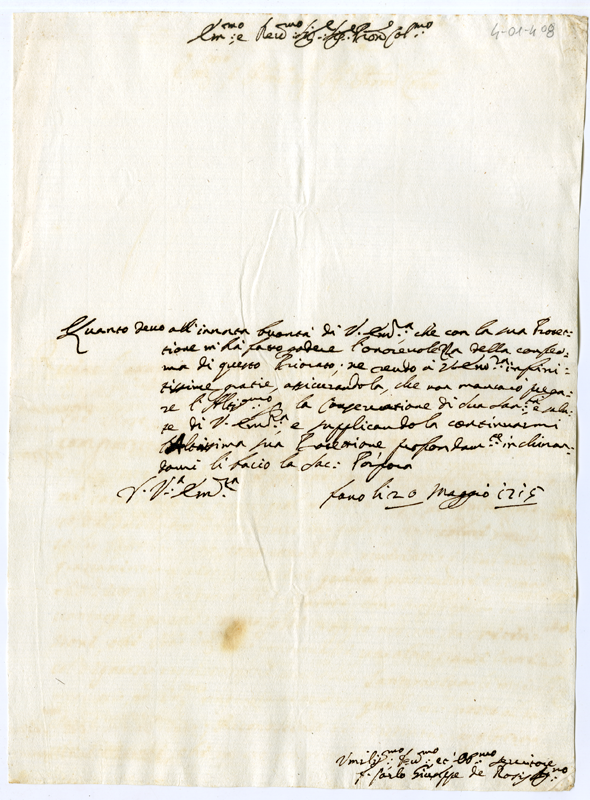 Em:mo e Reu:mo Sig:r Sig:r Pron Col:mo
4-01-408
Quanto deuo all'innata bontà di V. Em:za che con la sua Protet-
tione mi hà fatto godere l'onoreuolezza della confer-
ma di questo Priorato, ne rendo à V. Em:za infini-
tissime gratie, assicurandola, che non mancaro prega-
re l'Altissimo p la Conseruatione di Sua San:tà e salu-
te di V. Em:za e supplicandola continuarmi
l'Altissima sua Protettione profondam:te inchinan-
domi li bacio la Sac: Porpora
D. V:a Em:za
Fano li 20 Maggio 1715
Vmiliss:mo Deu:mo et Obb:mo Seruitore
f. Carlo Giuseppe de Rossi